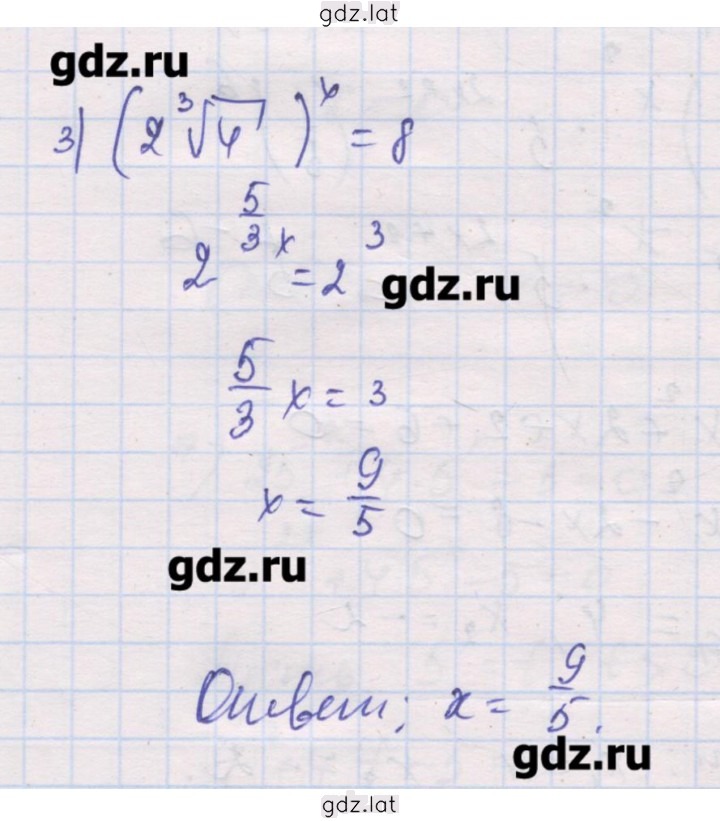 gdz.lat
gdz.ru
3) (2∛4)^x = 8
2^(5/3 x) = 2^3
gdz.ru
5/3 x = 3
x = 9/5
gdz.ru
Ответ: x = 9/5.
gdz.ru
gdz.lat